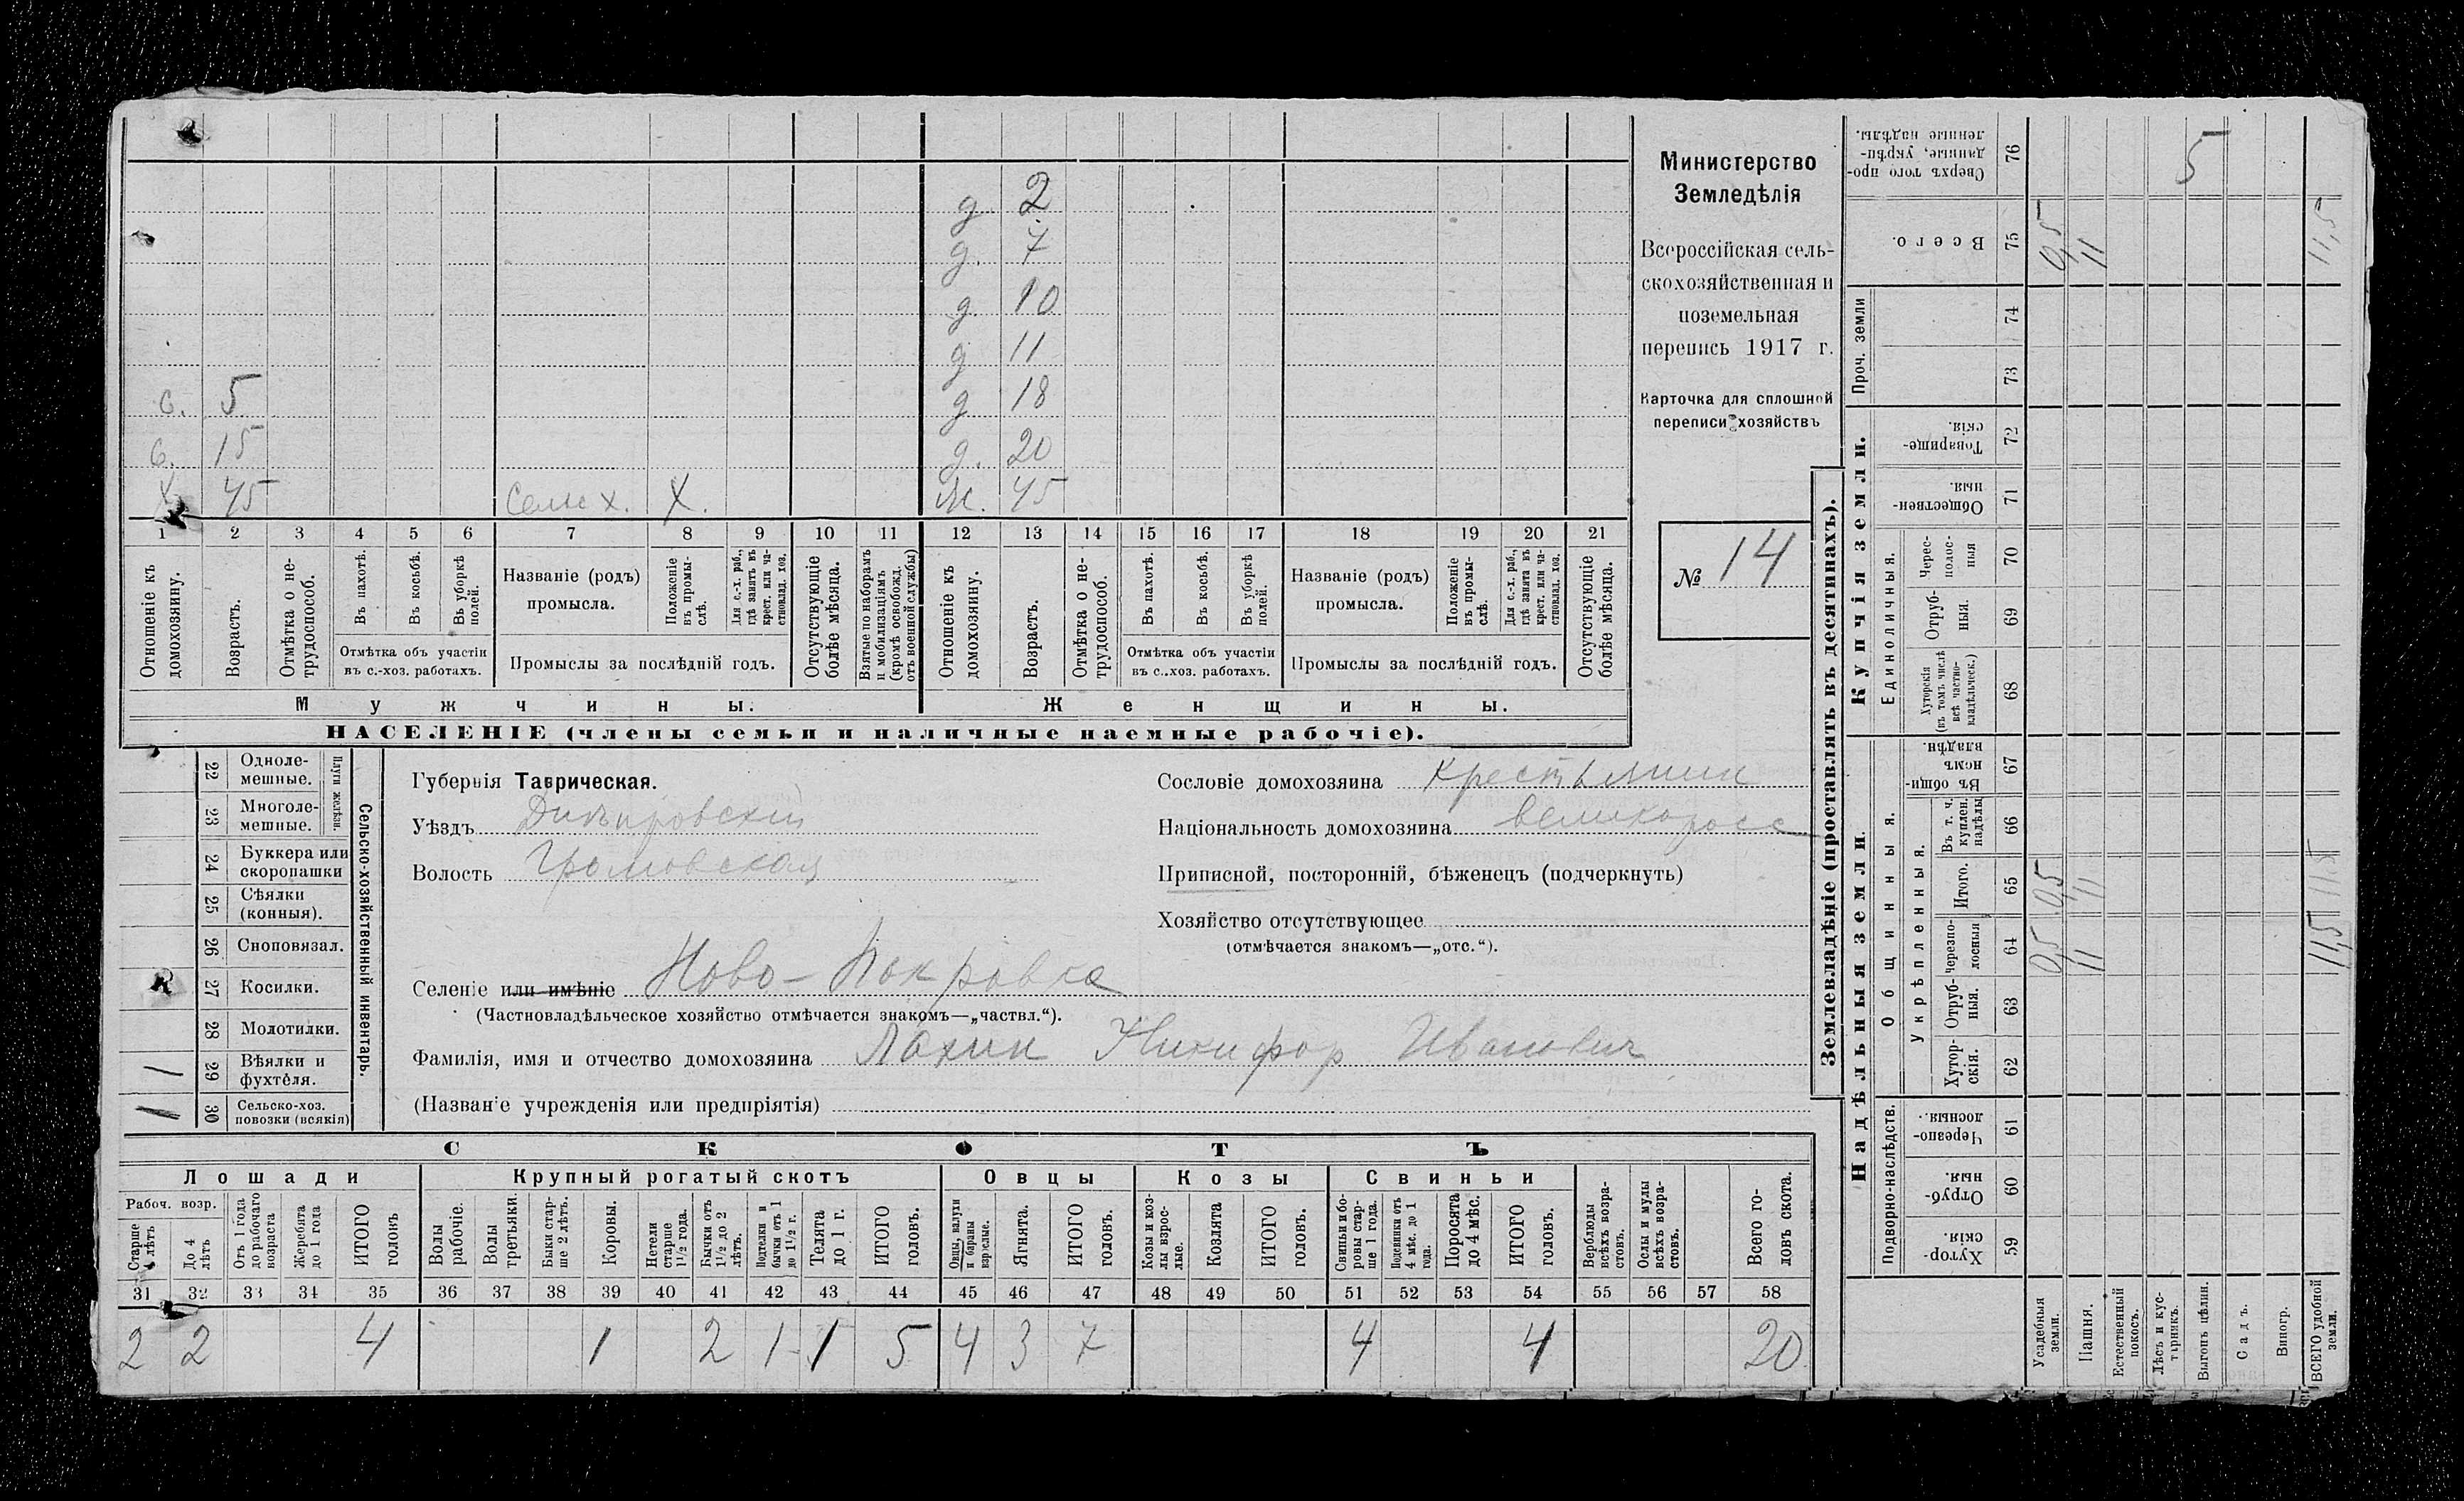 д 2
д. 7
д. 10
д 11
с. 5 д 18
с. 15 д. 20
х 45 Сельс х. Х. ж. 45
1 2 3 4 5 6 7 8 9 10 11 12 13 14 15 16 17 18 19 20 21
Отношеніе къ домохозяину.
Возрастъ.
Отмѣтка о не-
трудоспособ.
Въ пахотѣ.
Въ косьбѣ.
Въ уборкѣ
полей.
Отмѣтка объ участіи
въ с.-хоз. работахъ.
Названіе (родъ)
промысла.
Положеніе
въ промы-
слѣ.
Для с.-х. раб.,
гдѣ занятъ въ
крест. или ча-
стновлад. хоз.
Промыслы за послѣдній годъ.
Отсутствующіе
болѣе мѣсяца.
Взятые по наборамъ
и мобилизаціямъ
(кромѣ освобожд.
отъ военной службы)
Отношеніе къ
домохозяину.
Возрастъ.
Отмѣтка о не-
трудоспособ.
Въ пахотѣ.
Въ косьбѣ.
Въ уборкѣ
полей.
Отмѣтка объ участіи
въ с.-хоз. работахъ.
Названіе (родъ)
промысла.
Положеніе
въ промы-
слѣ.
Для с.-х. раб.,
гдѣ занята въ
крест. или ча-
стновлад. хоз.
Промыслы за послѣдній годъ.
Отсутствующіе
болѣе мѣсяца.
Мужчины. Женщины.
НАСЕЛЕНІЕ (члены семьи и наличные наемные рабочіе).
Министерство
Земледѣлія
Всероссійская сель-
скохозяйственная и
поземельная
перепись 1917 г.
Карточка для сплошной
переписи хозяйствъ
№ 14
22 Одноле-
мешные.
23 Многоле-
мешные.
Плуги желѣзн.
24 Буккера или
скоропашки
25 Сѣялки
(конныя).
26 Сноповязал.
27 Косилки.
28 Молотилки.
1 29 Вѣялки и
фухтеля.
1 30 Сельско-хоз.
повозки (всякія)
Сельско-хозяйственный инвентарь.
Губернія Таврическая.
Уѣздъ Днѣпровскій
Волость Громовская
Селеніе или имѣніе Ново-Покровка
(Частновладѣльческое хозяйство отмѣчается знакомъ—„частвл.“).
Фамилія, имя и отчество домохозяина Лахин Никифор Иванович
(Названіе учрежденія или предпріятія)
Сословіе домохозяина крестьянин
Національность домохозяина великоросс
Приписной, посторонній, бѣженецъ (подчеркнуть)
Хозяйство отсутствующее
(отмѣчается знакомъ—„отс.“).
СКОТЪ
Лошади Крупный рогатый скотъ Овцы Козы Свиньи
Рабоч. возр.
Старше
4 лѣтъ
До 4
лѣтъ
Отъ 1 года
до рабочаго
возраста
Жеребята
до 1 года
ИТОГО
головъ
Волы
рабочіе.
Волы
третьяки.
Быки стар-
ше 2 лѣтъ.
Коровы.
Нетели
старше
1½ года.
Бычки отъ
1½ до 2
лѣтъ.
Подтелки и
бычки отъ 1
до 1½ г.
Телята
до 1 г.
ИТОГО
головъ.
Овцы, валухи
и бараны
взрослые.
Ягнята.
ИТОГО
головъ.
Козы и коз-
лы взрос-
лые.
Козлята
ИТОГО
головъ.
Свиньи и бо-
ровы стар-
ше 1 года.
Подсвинки отъ
4 мѣс. до 1
года.
Поросята
до 4 мѣс.
ИТОГО
головъ.
Верблюды
всѣхъ возра-
стовъ.
Ослы и мулы
всѣхъ возра-
стовъ.
Всего го-
ловъ скота.
31 32 33 34 35 36 37 38 39 40 41 42 43 44 45 46 47 48 49 50 51 52 53 54 55 56 57 58
2 2 4 1 2 1 1 5 4 3 7 4 4 20
Землевладѣніе (проставлять въ десятинахъ).
Надѣльныя земли. Купчія земли. Проч. земли
Подворно-наслѣдств.
Общинныя.
Укрѣпленныя.
Единоличныя.
Сверхъ того про-
данные, укрѣп-
ленные надѣлы. 76 5
Всего. 75 0,5 11 11,5
74
73
Товарище-
скія. 72
Обществен-
ныя. 71
Черес-
полос-
ныя 70
Отруб-
ныя. 69
Хуторскія
(въ томъ числѣ
всѣ частно-
владѣльческ.) 68
Въ общин-
номъ
владѣн. 67
Въ т. ч.
куплен.
надѣлы 66
Итого. 65 0,5 11 11,5
черезпо-
лосныя 64 0,5 11 11,5
Отруб-
ныя. 63
Хутор-
скія. 62
Черезпо-
лосныя. 61
Отруб-
ныя. 60
Хутор-
скія. 59
Усадебныя
земли.
Пашня.
Естественный
покосъ.
Лѣсъ и кус-
тарникъ.
Выгонъ цѣлин.
Садъ.
Виногр.
ВСЕГО удобной
земли.